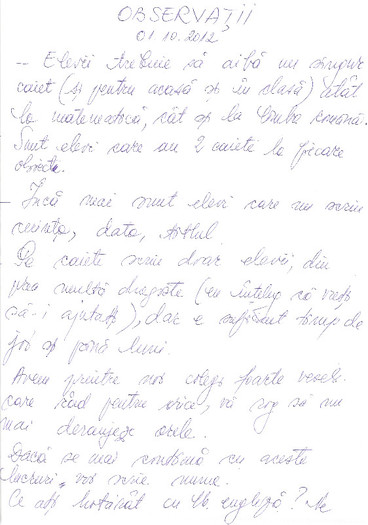 OBSERVAȚII
01.10.2012
-- Elevii trebuie să aibă un singur
caiet (și pentru acasă și în clasă) atât
la matematică, cât și la limba română.
Sunt elevi care au 2 caiete la fiecare
obiecte.
- Încă mai sunt elevi care nu scriu
cerința, data, titlul
Pe caiete scriu doar elevii, din
prea multă dragoste (eu înțeleg că vreți
să-i ajutați), dar e suficient timp de
joi și până luni.
Avem printre noi colegi foarte veseli
care râd pentru orice, vă rog să nu
mai deranjeze orele.
Dacă se mai continuă cu aceste
lucruri, voi scrie nume.
Ce ați hotărât cu lb. engleză?